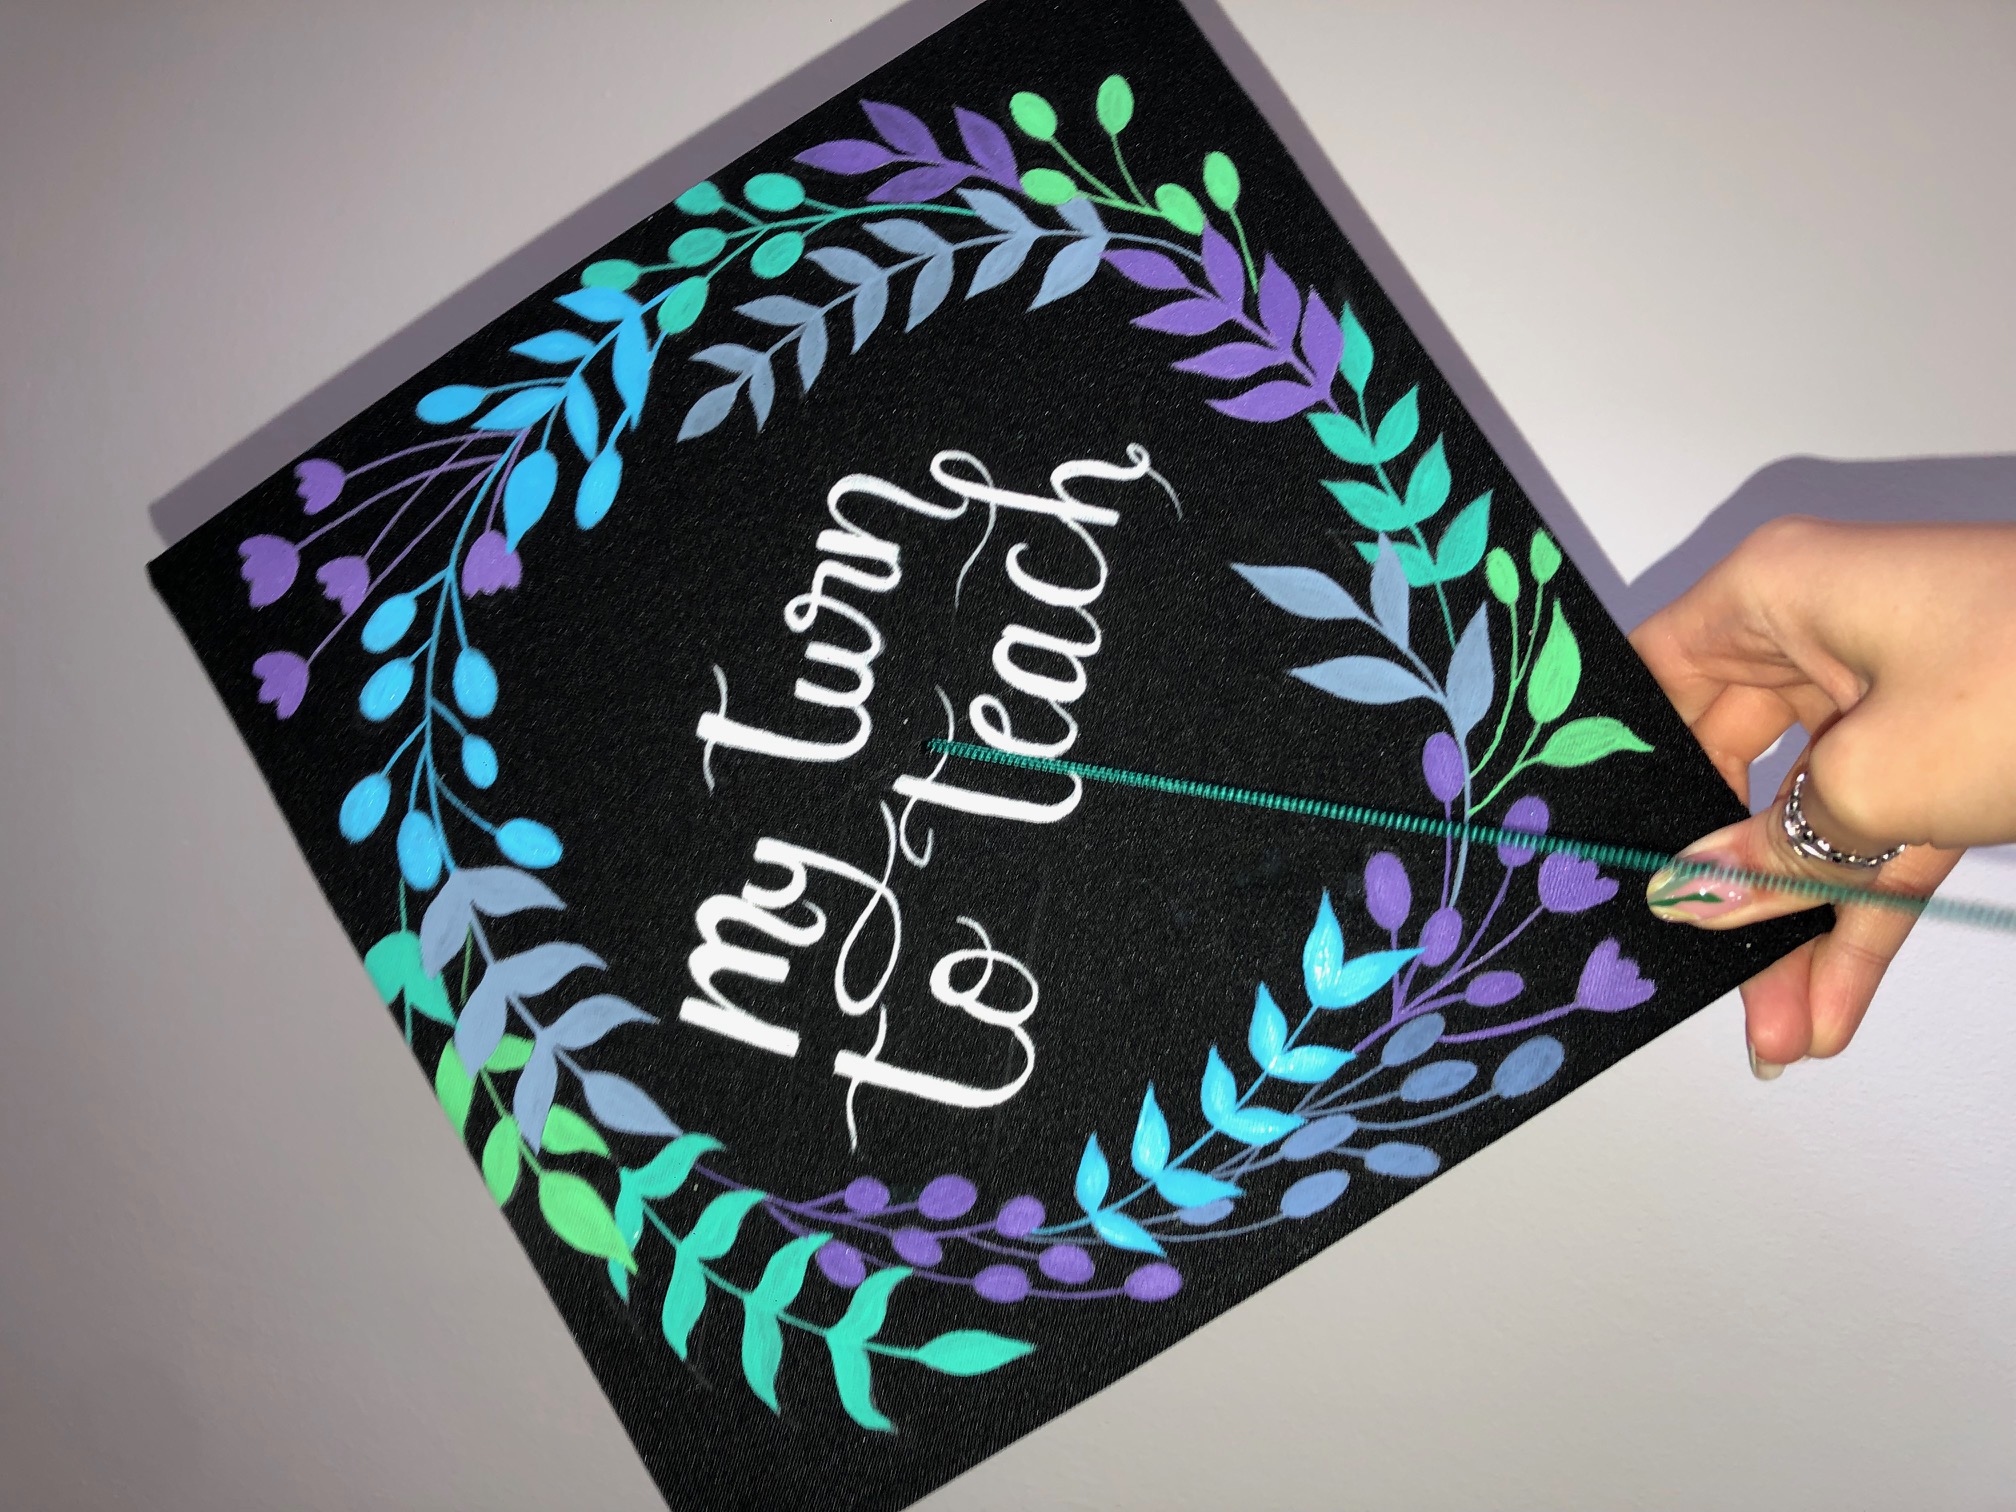 my turn
to teach